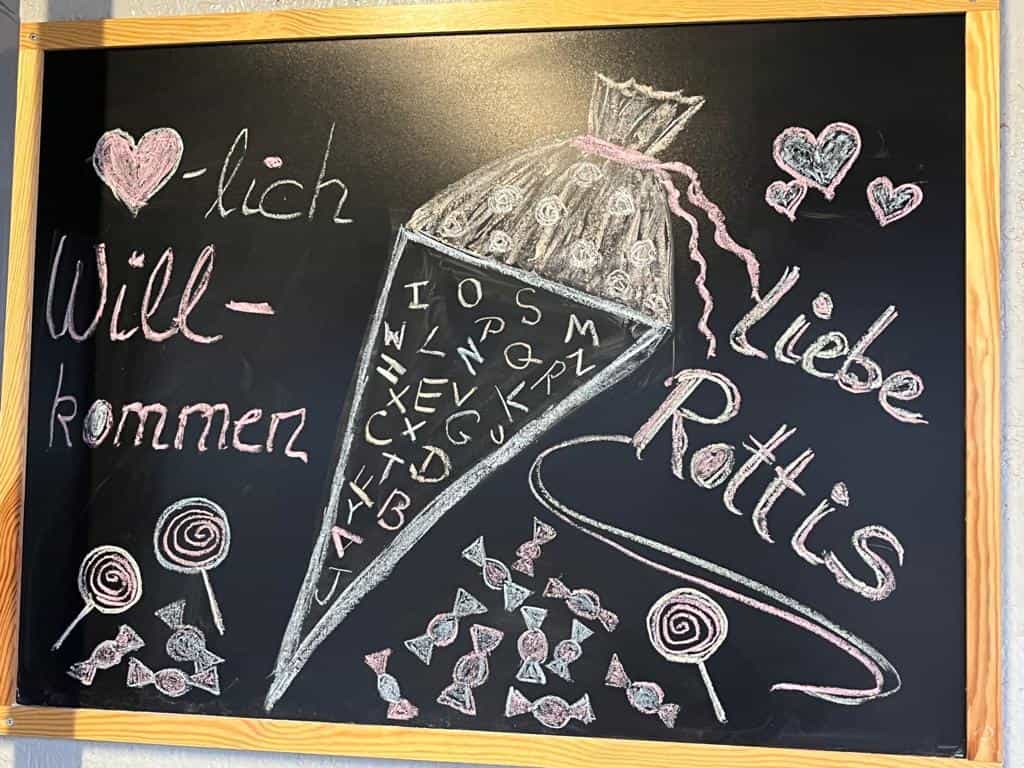 -lich
Will-
kommen
I O S M
W L P
H N Q Z
X E V K R
C X G U
T D
F
H B
A
J
Liebe
Rottis